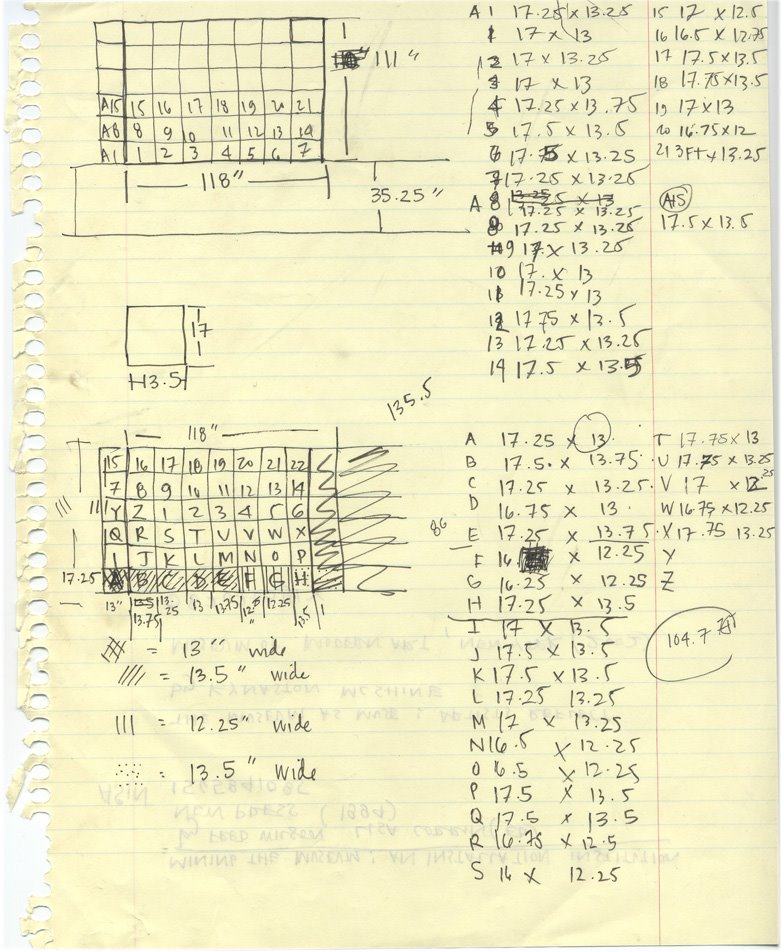 111"
A15 15 16 17 18 19 20 21
A8 8 9 10 11 12 13 14
A1 1 2 3 4 5 6 7
118"
35.25"
A 1 17.25 x 13.25
1 17 x 13
2 17 x 13.25
3 17 x 13
4 17.25 x 13.75
5 17.5 x 13.5
6 17.75 x 13.25
7 17.25 x 13.25
A 8 17.25 x 13.25
8 17.25 x 13.25
9 17 x 13.25
10 17. x 13
11 17.25 x 13
12 17.75 x 13.5
13 17.25 x 13.25
14 17.5 x 13.5
15 17 x 12.5
16 16.5 x 12.75
17 17.5 x 13.5
18 17.75 x 13.5
19 17 x 13
20 16.75 x 12
21 3FT x 13.25
A15
17.5 x 13.5
17
13.5
135.5
118"
15 16 17 18 19 20 21 22
7 8 9 10 11 12 13 14
Y Z 1 2 3 4 5 6
Q R S T U V W X
I J K L M N O P
A B C D E F G H
111
17.25
86
13" 13.75 13.25 13 13.75 12.25" 12.25 13.5
= 13" wide
= 13.5" wide
= 12.25" wide
= 13.5" wide
A 17.25 x 13.
B 17.5. x 13.75
C 17.25 x 13.25
D 16.75 x 13.
E 17.25 x 13.75
F 16 x 12.25
G 16.25 x 12.25
H 17.25 x 13.5
I 17 x 13.5
J 17.5 x 13.5
K 17.5 x 13.5
L 17.25 13.25
M 17 x 13.25
N 16.5 x 12.25
O 6.5 x 12.25
P 17.5 x 13.5
Q 17.5 x 13.5
R 16.75 x 12.5
S 16 x 12.25
T 17.75 x 13
U 17.75 x 13.25
V 17 x 12.25
W 16.75 x 12.25
X 17.75 13.25
Y
Z
104.7
MINING THE MUSEUM: AN INSTALLATION
by FRED WILSON, LISA
NEW PRESS (1994)
ASIN
THE MUSEUM AS MUSE: ARTISTS REFLECT
by KYNASTON MCSHINE
MUSEUM OF MODERN ART, NEW